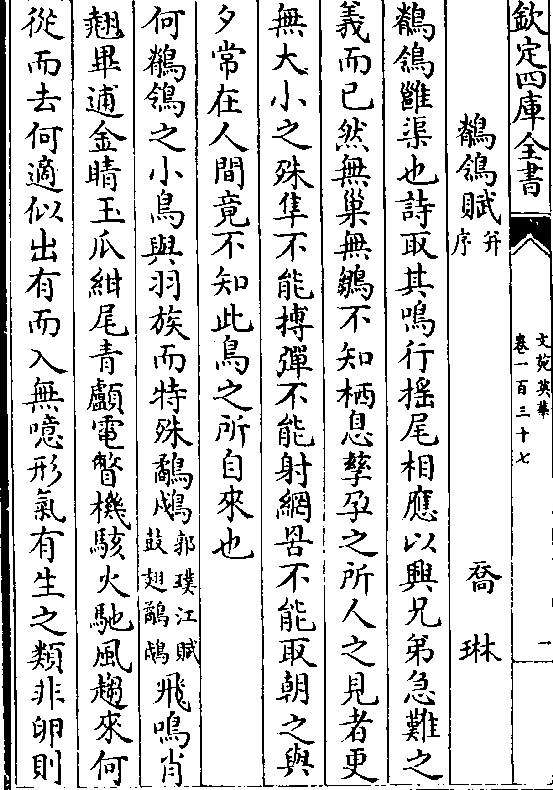 欽定四庫全書
文苑英華
卷一百三十七
一
鶺鴒賦并序
喬琳
鶺鴒雝渠也詩取其鳴行搖尾相應以興兄弟急難之
義而已然無巢無鶵不知栖息孳孕之所人之見者更
無大小之殊隼不能搏彈不能射網罟不能取朝之與
夕常在人間竟不知此鳥之所自來也
何鶺鴒之小鳥與羽族而特殊鷸鴥郭璞江賦鼓翅鷸鴥飛鳴肖
翹畢逋金睛玉爪紺尾青顱電瞥機駭火馳風趨來何
從而去何適似出有而入無噫形氣有生之類非卵則